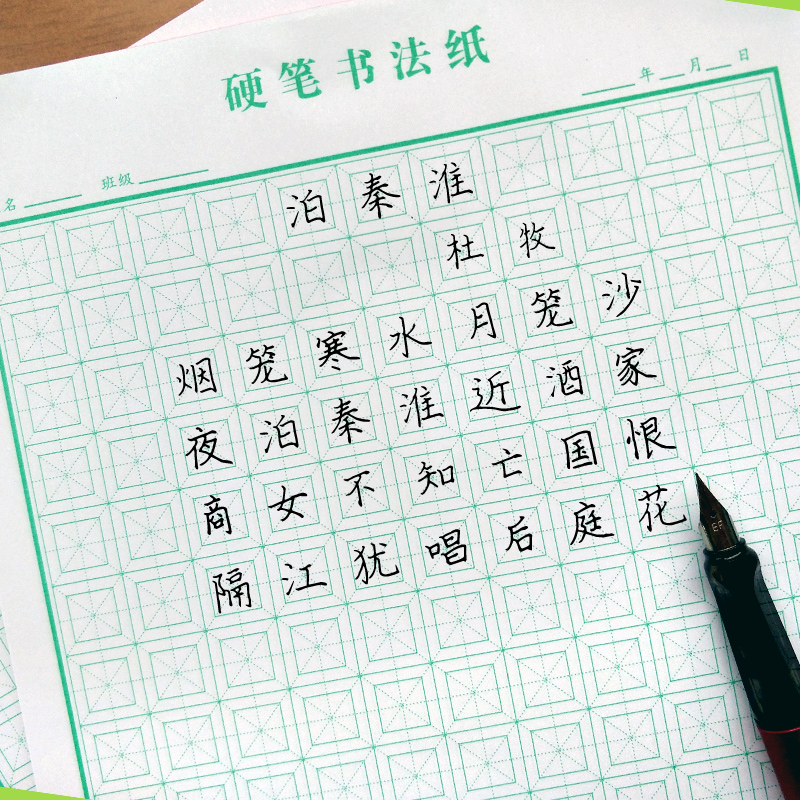 硬笔书法纸
年 月 日
名 班级
泊秦淮
杜牧
烟笼寒水月笼沙
夜泊秦淮近酒家
商女不知亡国恨
隔江犹唱后庭花
EF